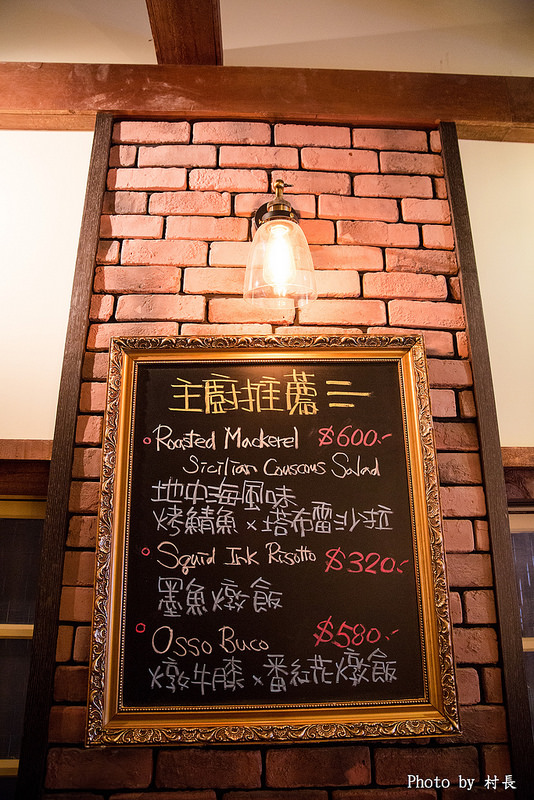 主廚推薦二
Roasted Mackerel $600.-
Sicilian Couscous Salad
地中海風味
烤鯖魚 × 塔布雷沙拉
Squid Ink Risotto $320.-
墨魚燉飯
Osso Buco $580.-
燉牛膝 × 番紅花燉飯
Photo by 村長